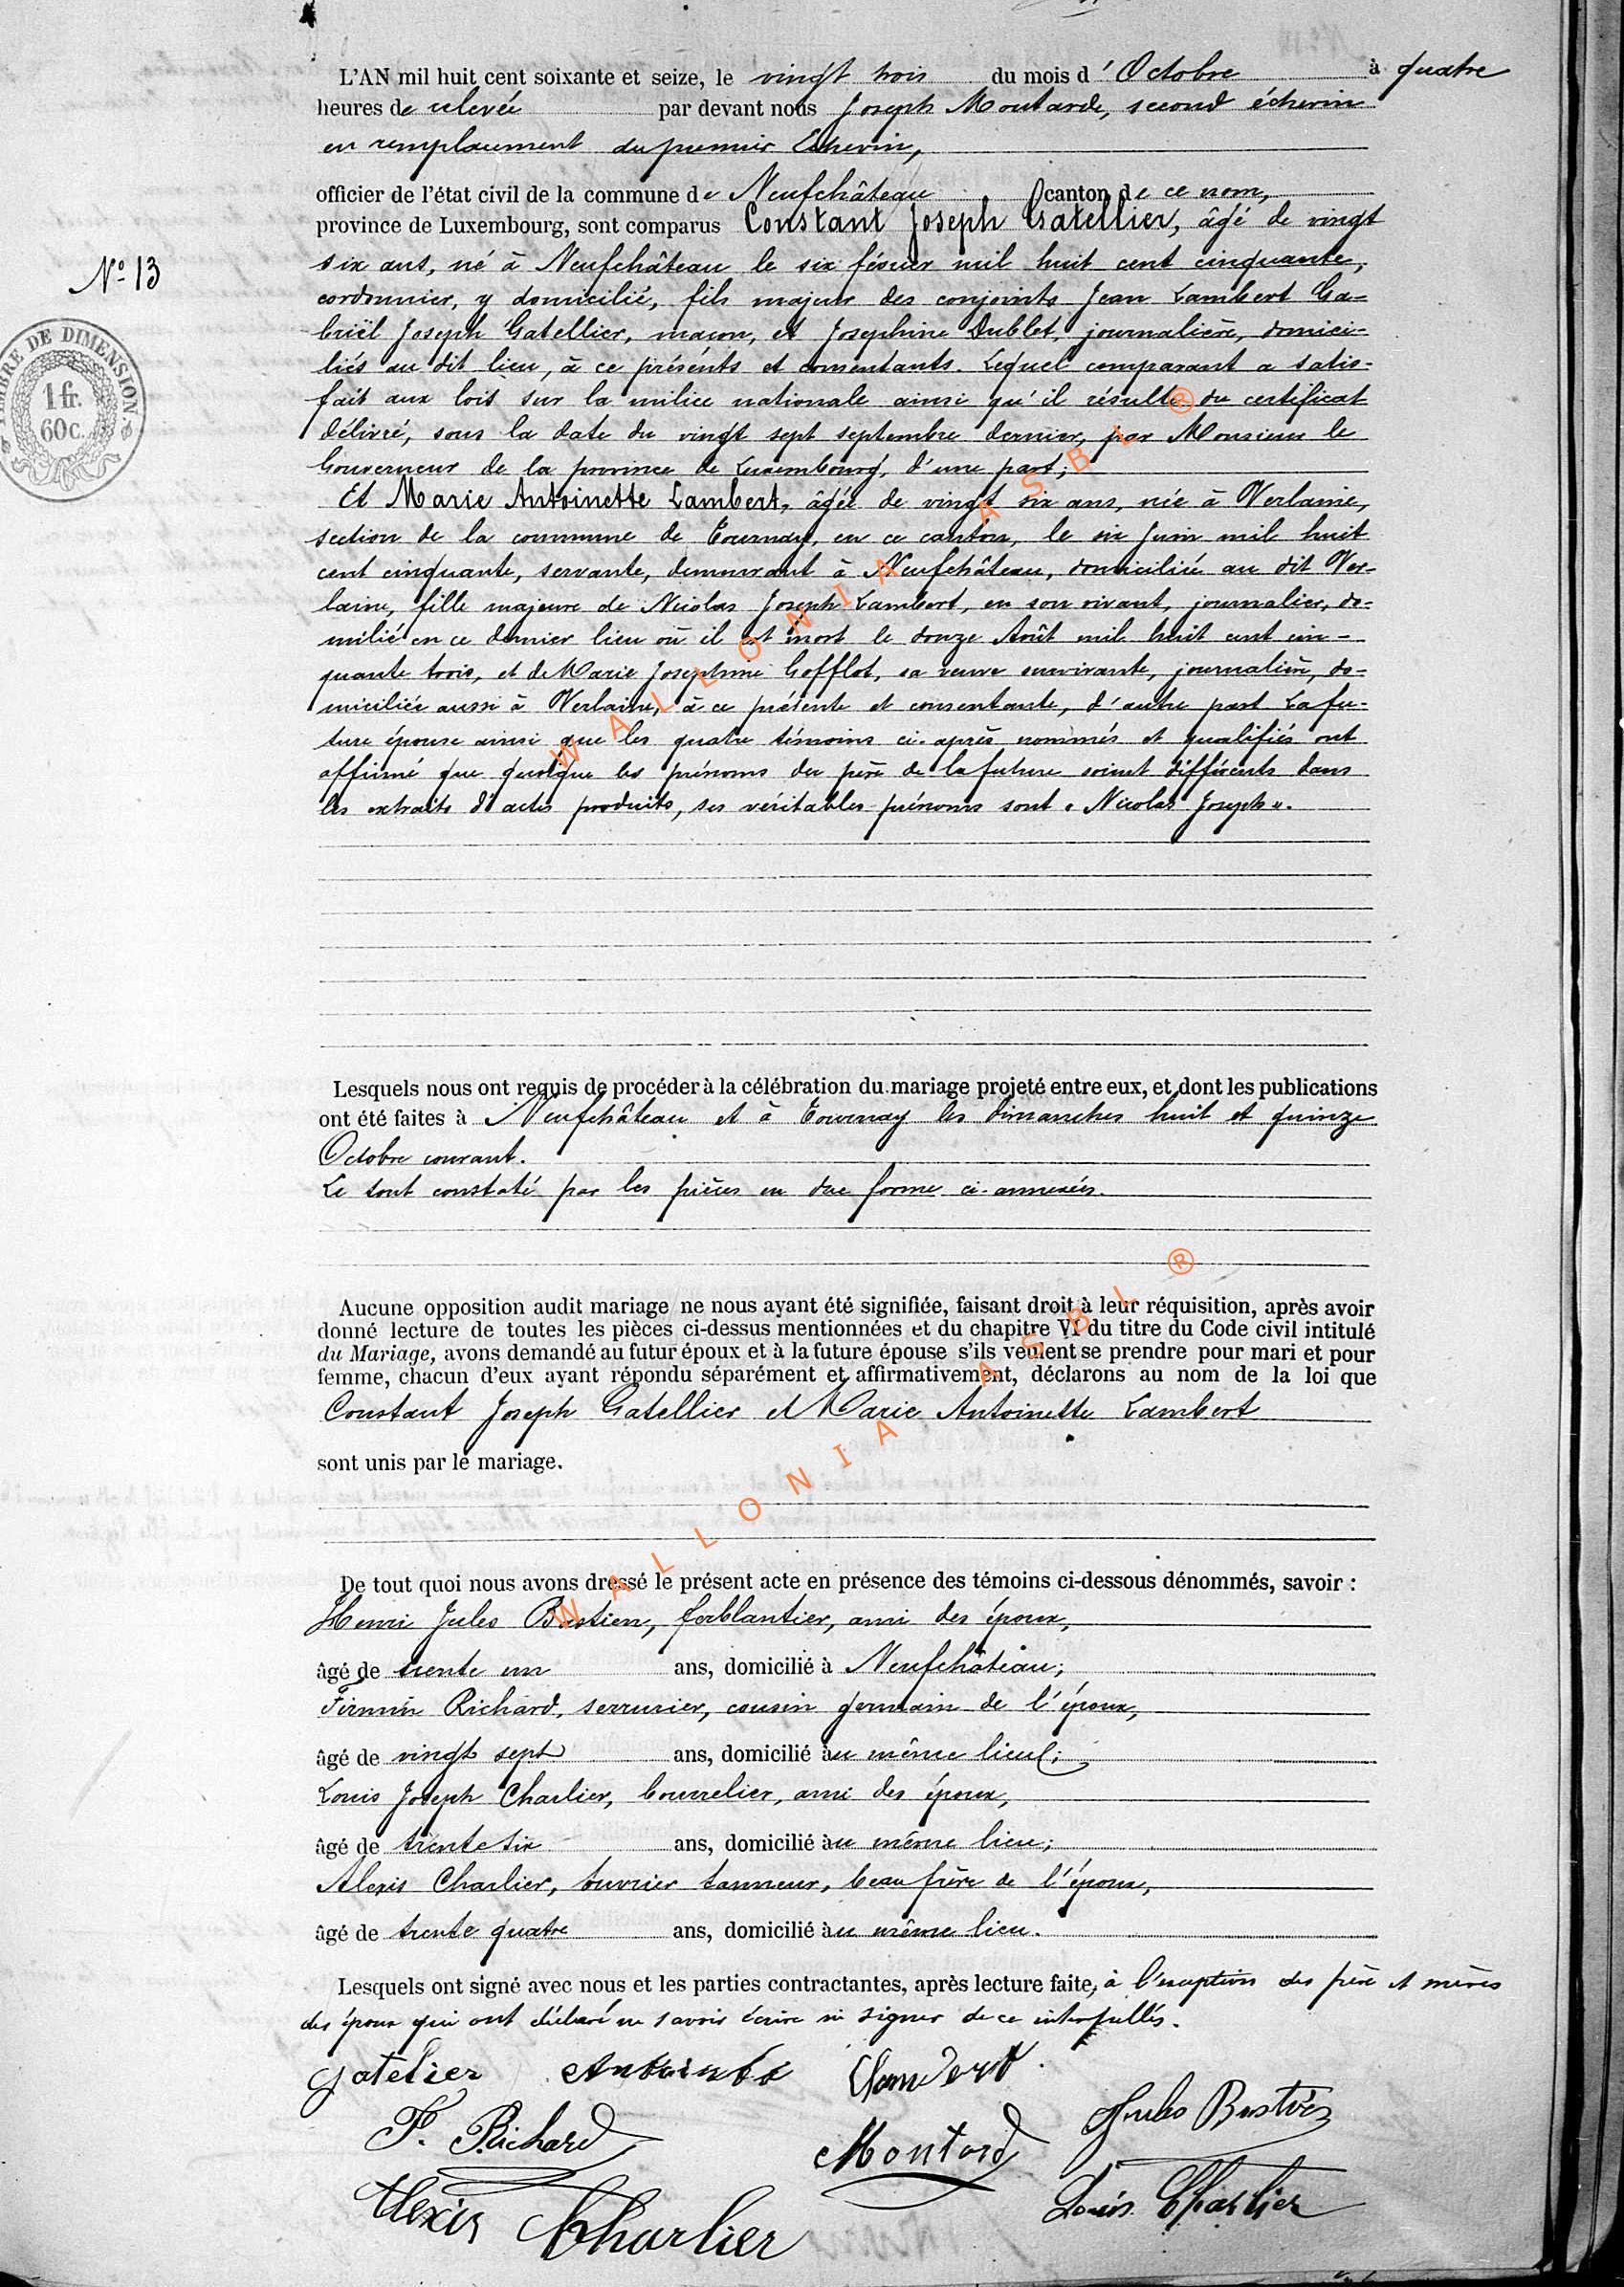 L'AN mil huit cent soixante et seize, le vingt trois du mois d'Octobre à quatre
heures de relevée par devant nous Joseph Moutarde, second échevin
en remplacement du premier Echevin,
officier de l'état civil de la commune de Neufchâteau canton de ce nom,
province de Luxembourg, sont comparus Constant Joseph Gatellier, âgé de vingt
six ans, né à Neufchâteau le six février mil huit cent cinquante,
cordonnier, y domicilié, fils majeur des conjoints Jean Lambert Ga=
N° 13
briël Joseph Gatellier, maçon, et Josephine Dublet, journalière, domici=
TIMBRE DE DIMENSION
1 fr.
60c.
liés au dit lieu, à ce présents et consentants. Lequel comparant a satis=
fait aux lois sur la milice nationale ainsi qu'il résulte du certificat
délivré, sous la date du vingt sept septembre dernier, par Monsieur le
Gouverneur de la province de Luxembourg, d'une part;
Et Marie Antoinette Lambert, âgée de vingt six ans, née à Verlaine,
section de la commune de Tournay, en ce canton, le six Juin mil huit
cent cinquante, servante, demeurant à Neufchâteau, domiciliée au dit Ver=
laine, fille majeure de Nicolas Joseph Lambert, en son vivant, journalier, do=
milié en ce dernier lieu où il est mort le douze Août mil huit cent cin=
quante trois, et de Marie Josephine Gofflot, sa veuve survivante, journalière, do=
miciliée aussi à Verlaine, à ce présente et consentante, d'autre part. La fu=
ture épouse ainsi que les quatre témoins ci-après nommés et qualifiés ont
affirmé que quoique les prénoms du père de la future soient différents dans
les extraits d'actes produits, ses véritables prénoms sont « Nicolas Joseph ».
WALLONIA ASBL ®
Lesquels nous ont requis de procéder à la célébration du mariage projeté entre eux, et dont les publications
ont été faites à Neufchâteau et à Tournay les dimanches huit et quinze
Octobre courant.
Le tout constaté par les pièces en due forme ci-annexées.
Aucune opposition audit mariage ne nous ayant été signifiée, faisant droit à leur réquisition, après avoir
donné lecture de toutes les pièces ci-dessus mentionnées et du chapitre VI du titre du Code civil intitulé
du Mariage, avons demandé au futur époux et à la future épouse s'ils veulent se prendre pour mari et pour
femme, chacun d'eux ayant répondu séparément et affirmativement, déclarons au nom de la loi que
Constant Joseph Gatellier et Marie Antoinette Lambert
sont unis par le mariage.
WALLONIA ASBL ®
De tout quoi nous avons dressé le présent acte en présence des témoins ci-dessous dénommés, savoir :
Henri Jules Bastien, ferblantier, ami des époux,
âgé de trente un ans, domicilié à Neufchâteau;
Firmin Richard, serrurier, cousin germain de l'époux,
âgé de vingt sept ans, domicilié au même lieu;
Louis Joseph Charlier, bourrelier, ami des époux,
âgé de trente six ans, domicilié au même lieu;
Alexis Charlier, ouvrier tanneur, beau frère de l'époux,
âgé de trente quatre ans, domicilié au même lieu.
Lesquels ont signé avec nous et les parties contractantes, après lecture faite, à l'exception des père et mères
des époux qui ont déclaré ne savoir écrire ni signer de ce interpellés.
gatelier Antoinette Lambert
F. Richard Moutard Jules Bastien
Alexis Charlier Louis Charlier